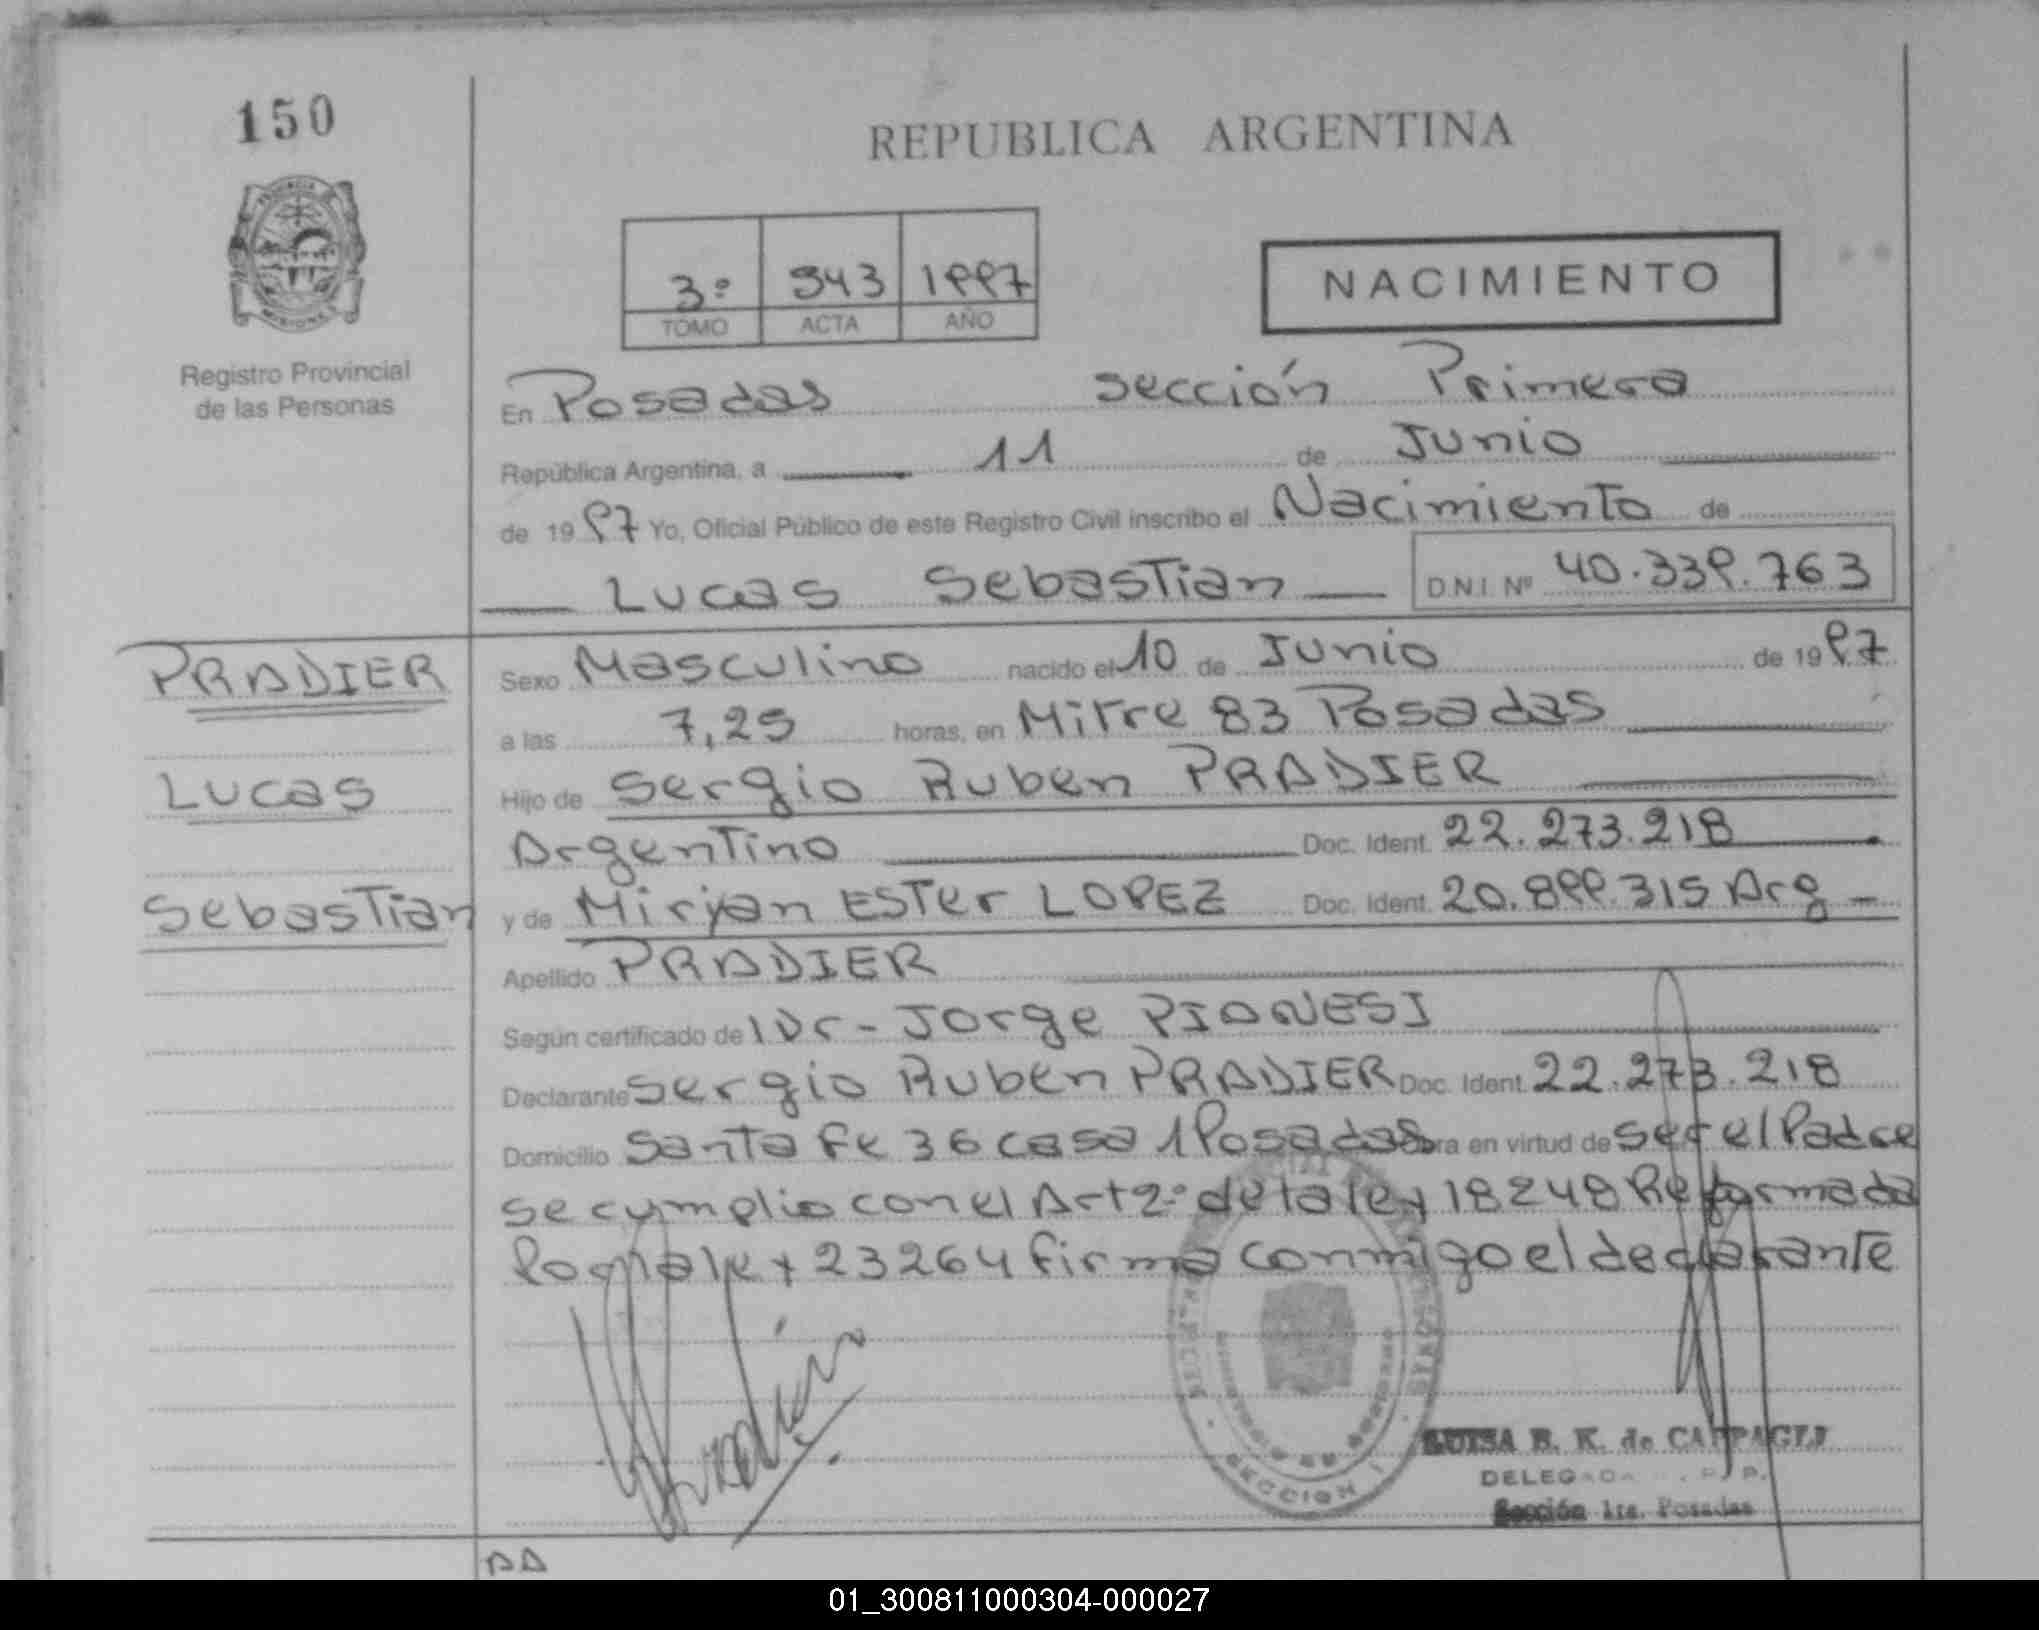 150
REPUBLICA ARGENTINA
3º 543 1997
TOMO ACTA AÑO
NACIMIENTO
Registro Provincial
de las Personas
En Posadas sección Primera
República Argentina, a 11 de Junio
de 1997 Yo, Oficial Público de este Registro Civil inscribo el Nacimiento de
Lucas Sebastian D.N.I. Nº 40.339.763
PRADIER
Lucas
Sebastian
Sexo Masculino nacido el 10 de Junio de 1997
a las 7,25 horas, en Mitre 83 Posadas
Hijo de Sergio Ruben PRADIER
Argentino Doc. Ident. 22.273.218
y de Mirjan ESTer LOPEZ Doc. Ident. 20.899.315 Arg
Apellido PRADIER
Según certificado de Dr- Jorge PIONESI
Declarante Sergio Ruben PRADIER Doc. Ident. 22.273.218
Domicilio Santa Fe 36 casa 1 Posadas en virtud de ser el Padre
se cumplio con el Art 2º de la ley 18248 Reformada
Por la ley 23264 firma conmigo el declarante
SECCION 1
LUISA B. K. de
DELEGADA
Sección 1ra. Posadas
01_300811000304-000027